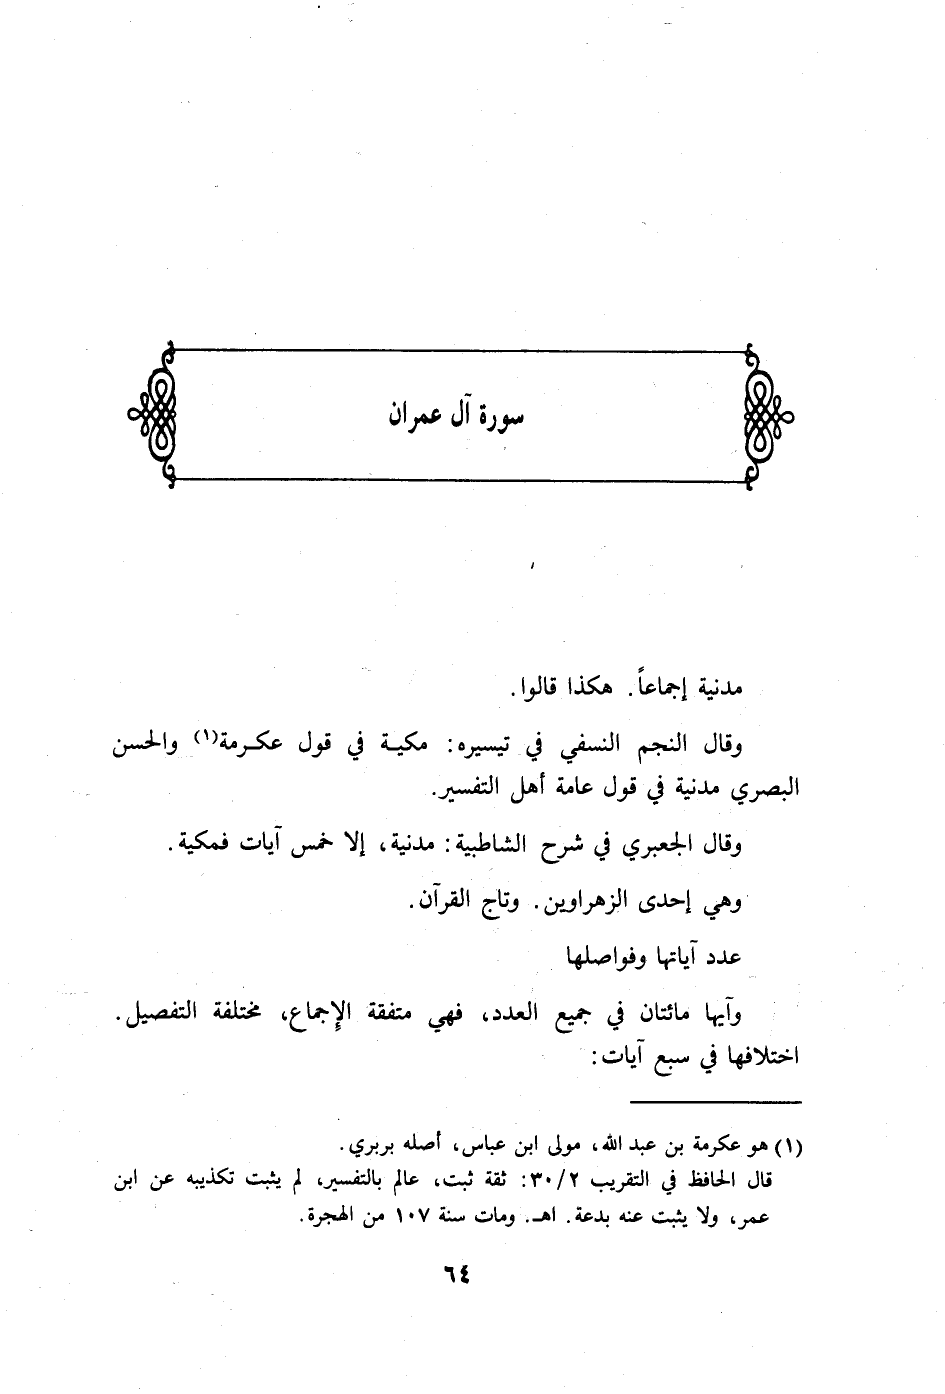 سورة آل عمران
مدنية إجماعاً. هكذا قالوا.
وقال النجم النسفي في تيسيره: مكية في قول عكرمة(١) والحسن
البصري مدنية في قول عامة أهل التفسير.
وقال الجعبري في شرح الشاطبية: مدنية، إلا خمس آيات فمكية.
وهي إحدى الزهراوين. وتاج القرآن.
عدد آياتها وفواصلها
وآيها مائتان في جميع العدد، فهي متفقة الإجماع، مختلفة التفصيل.
اختلافها في سبع آيات:
(١) هو عكرمة بن عبد الله، مولى ابن عباس، أصله بربري.
قال الحافظ في التقريب ٢/ ٣٠: ثقة ثبت، عالم بالتفسير، لم يثبت تكذيبه عن ابن
عمر، ولا يثبت عنه بدعة. اهـ. ومات سنة ١٠٧ من الهجرة.
٦٤